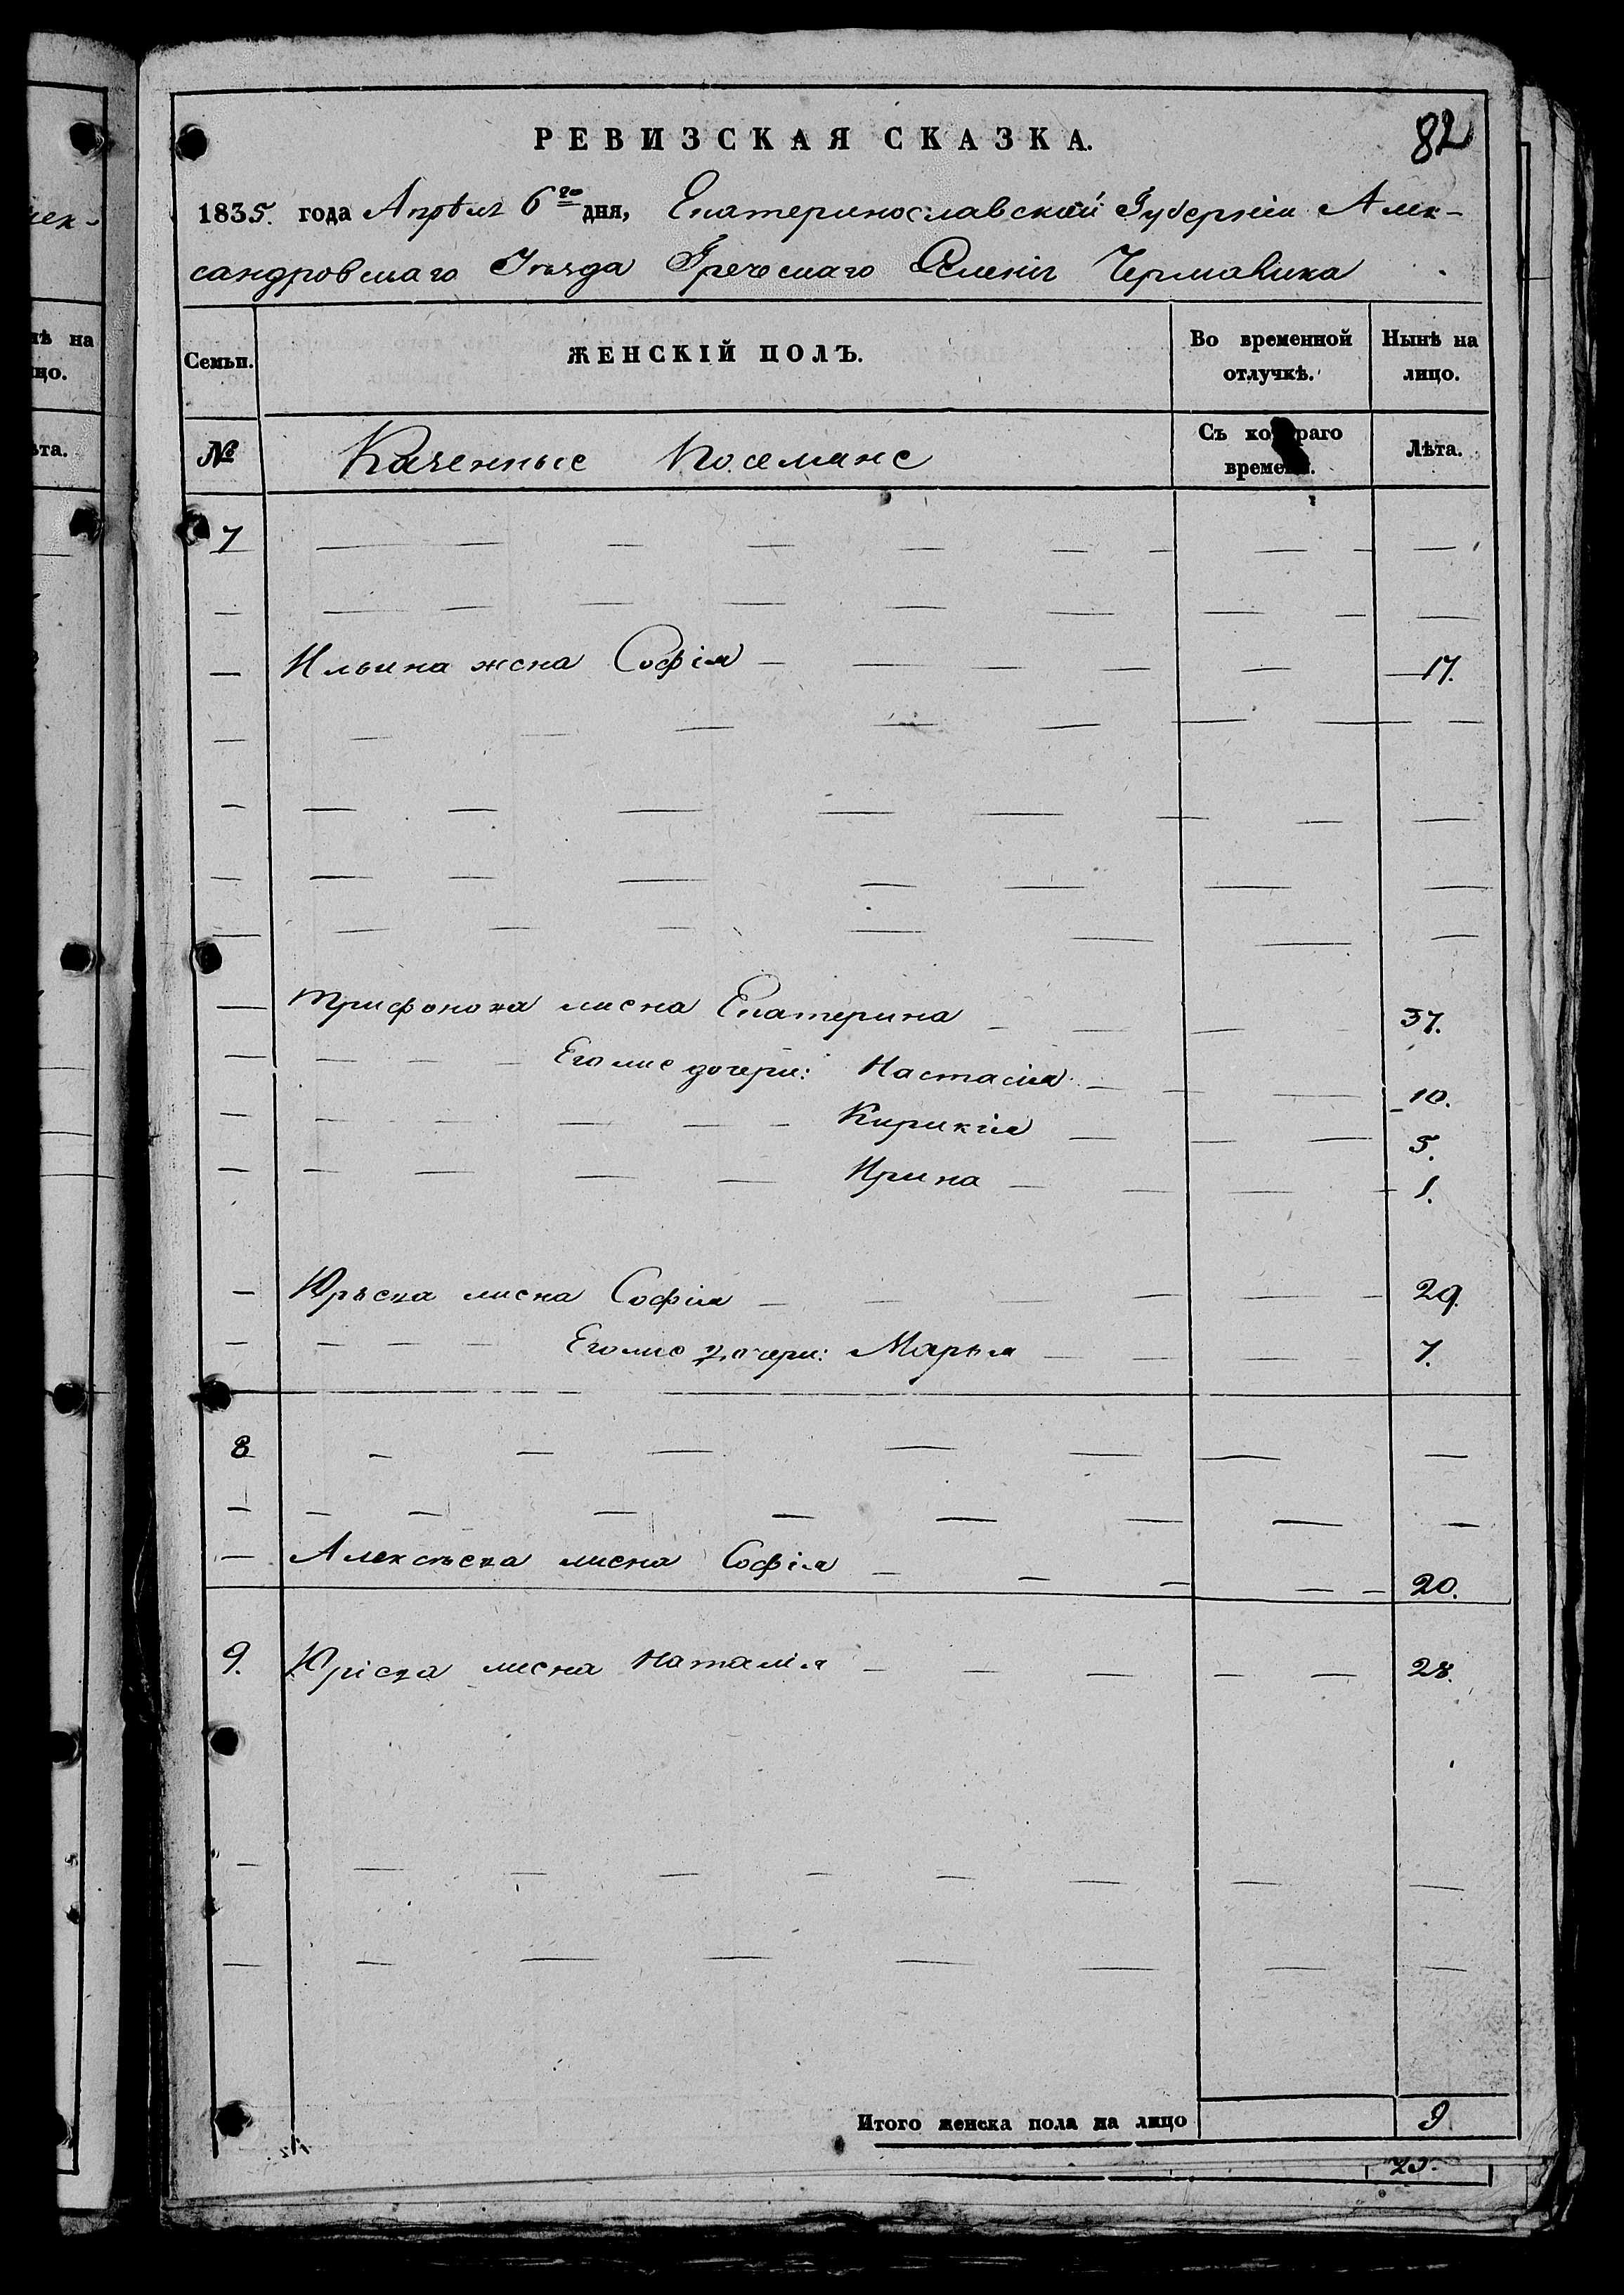 82
РЕВИЗСКАЯ СКАЗКА.
1835. года Апрѣля 6го дня, Екатеринославской Губерніи Алек-
сандровскаго Уѣзда Греческаго Селенія Чермалика
Семьи. ЖЕНСКІЙ ПОЛЪ. Во временной отлучкѣ. Нынѣ на лицо.
№ Казенные Поселяне Съ котораго времени. Лѣта.
7
Ильина жена Софія 17.
Трифонова жена Екатерина 37.
Его же дочери: Настасія 10.
Кирикія 5.
Ирина 1.
Юрьева жена Софія 29.
Его же дочери: Марья 7.
8
Алексѣева жена Софія 20.
9. Юрьева жена Наталія 28.
Итого женска пола на лицо 9